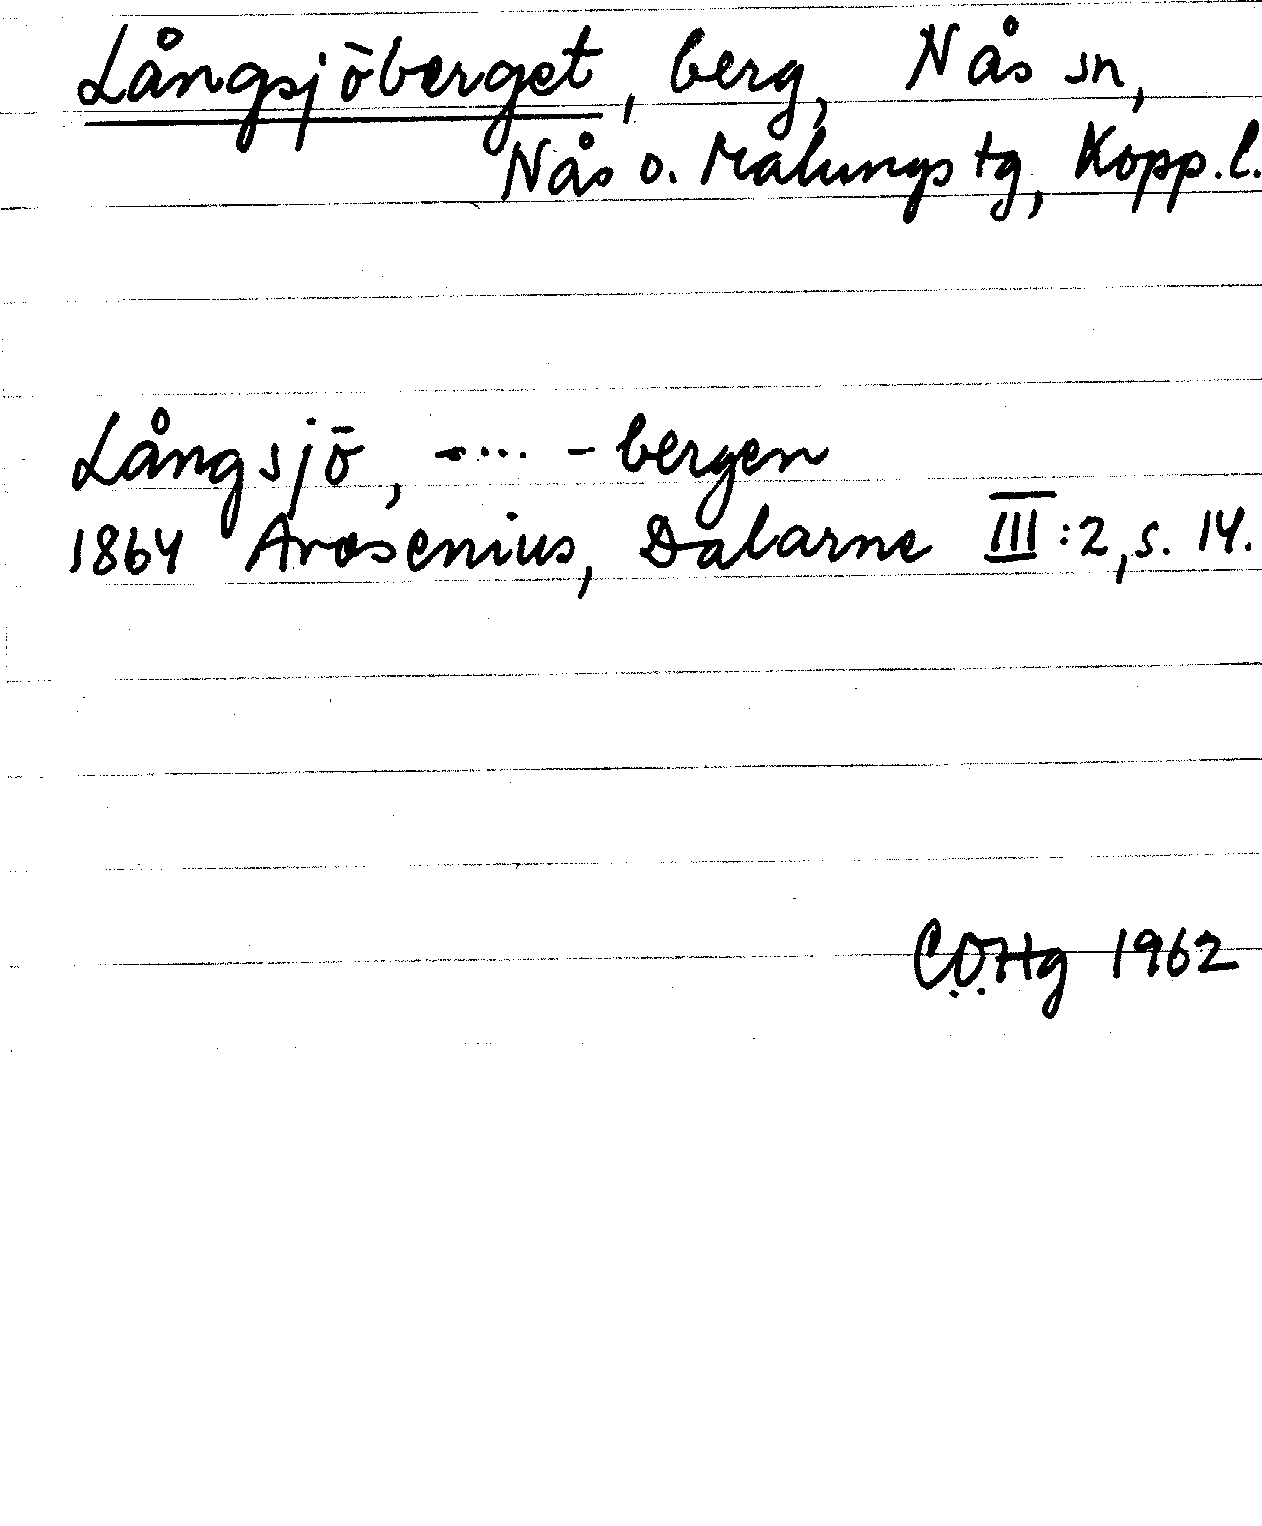 Långsjöberget, berg, Nås sn,
Nås o. Malungs tg, Kopp. l.
Långsjö, -.... - bergen
1864 Arosenius, Dalarne III:2, s. 14.
C.O.Hg 1962